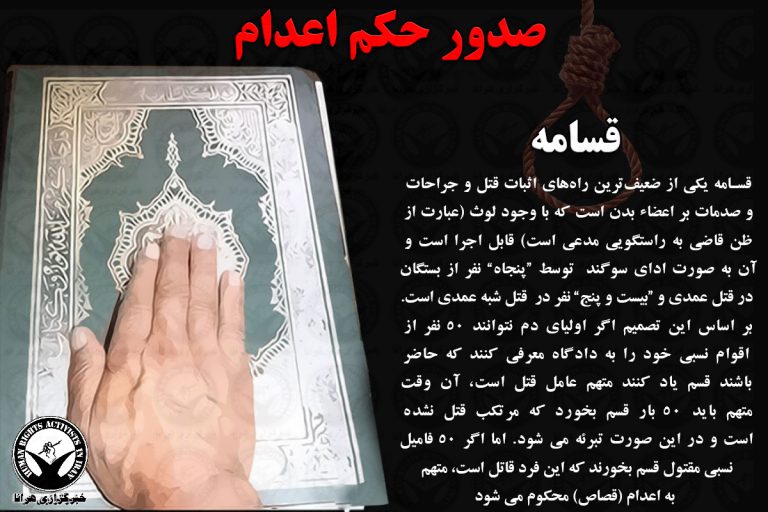 صدور حکم اعدام
قسامه
قسامه یکی از ضعیف‌ترین راه‌های اثبات قتل و جراحات
و صدمات بر اعضاء بدن است که با وجود لوث (عبارت از
ظن قاضی به راستگویی مدعی است) قابل اجرا است و
آن به صورت ادای سوگند توسط "پنجاه" نفر از بستگان
در قتل عمدی و "بیست و پنج" نفر در قتل شبه عمدی است.
بر اساس این تصمیم اگر اولیای دم نتوانند ۵۰ نفر از
اقوام نسبی خود را به دادگاه معرفی کنند که حاضر
باشند قسم یاد کنند متهم عامل قتل است، آن وقت
متهم باید ۵۰ بار قسم بخورد که مرتکب قتل نشده
است و در این صورت تبرئه می شود. اما اگر ۵۰ فامیل
نسبی مقتول قسم بخورند که این فرد قاتل است، متهم
به اعدام (قصاص) محکوم می شود
HUMAN RIGHTS ACTIVISTS IN IRAN
خبرگزاری هرانا